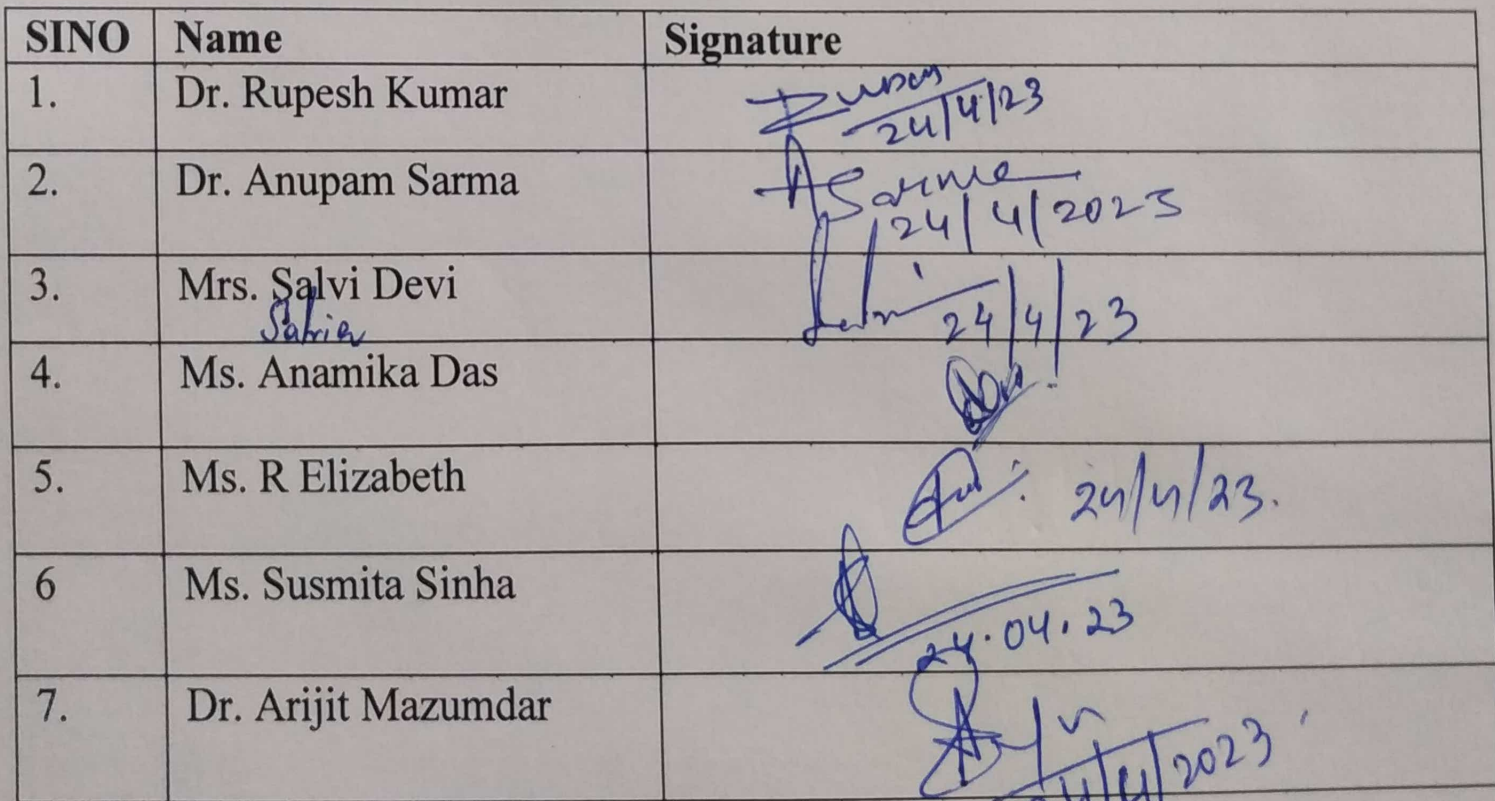 SINO Name Signature
1. Dr. Rupesh Kumar
24/4/23
2. Dr. Anupam Sarma
ASarma
24/4/2023
3. Mrs. Salvi Devi
24/4/23
4. Ms. Anamika Das
5. Ms. R Elizabeth
24/4/23.
6 Ms. Susmita Sinha
24.04.23
7. Dr. Arijit Mazumdar
24/4/2023